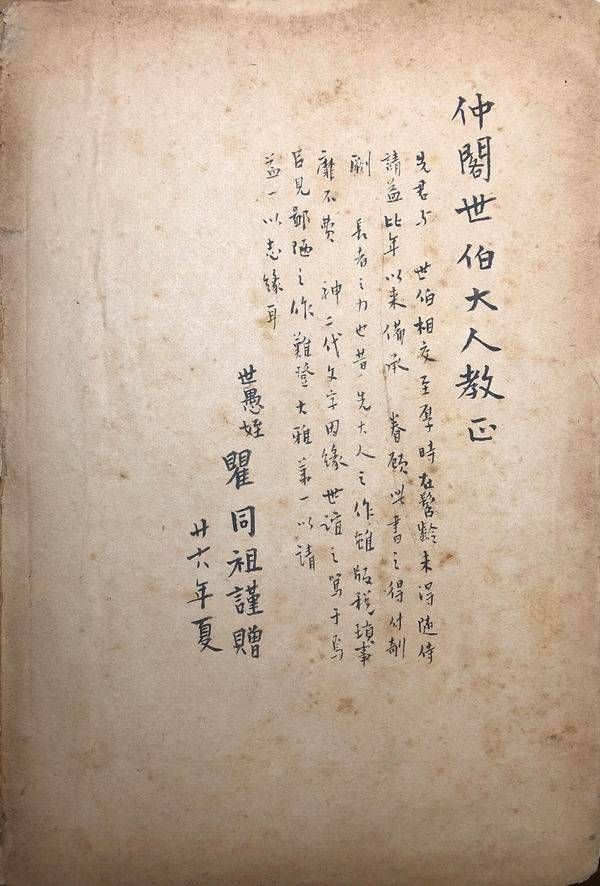 仲閣世伯大人教正
先君与　世伯相交至厚時在髫齡未得隨侍
請益比年以来備承　眷顧此書之得付剞
劂　長者之力也昔　先大人之作雖版税瑣事
靡不費　神二代文字因緣世誼之篤于焉
足見鄙陋之作難登大雅第一以請
益一以志緣耳
世愚姪
瞿同祖謹贈
廿六年夏